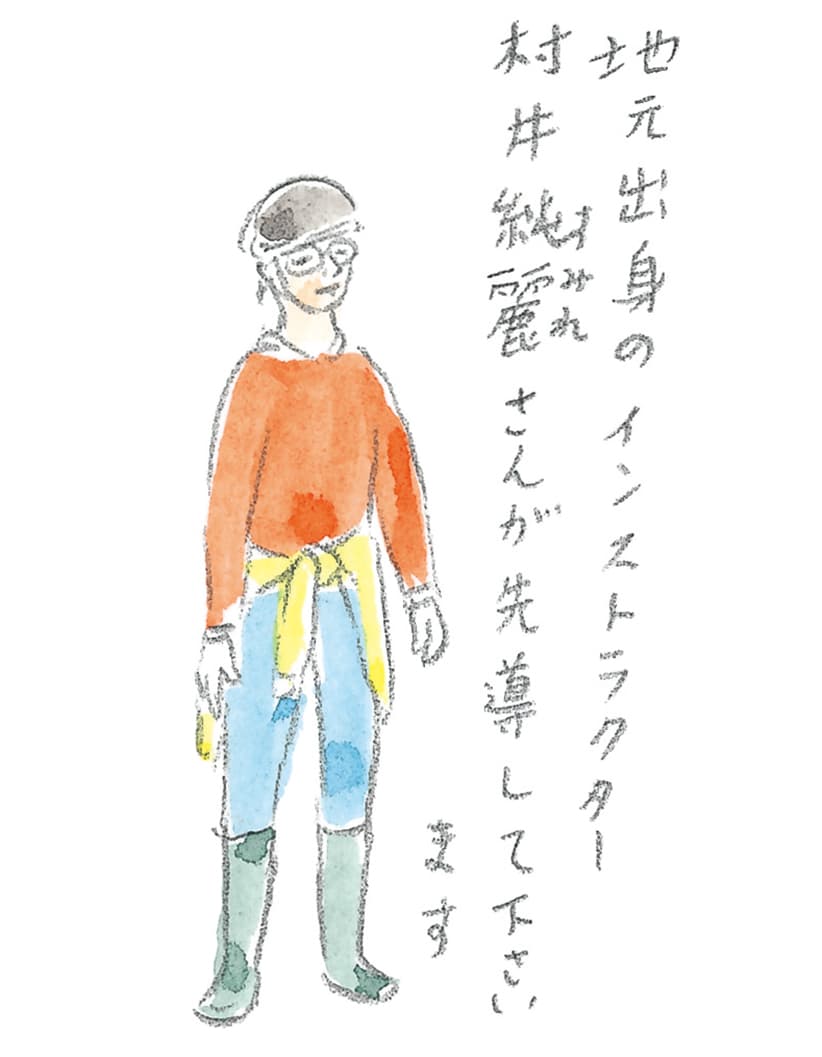 地元出身のインストラクター
村井純麗さんが先導して下さい
すみれ
ます